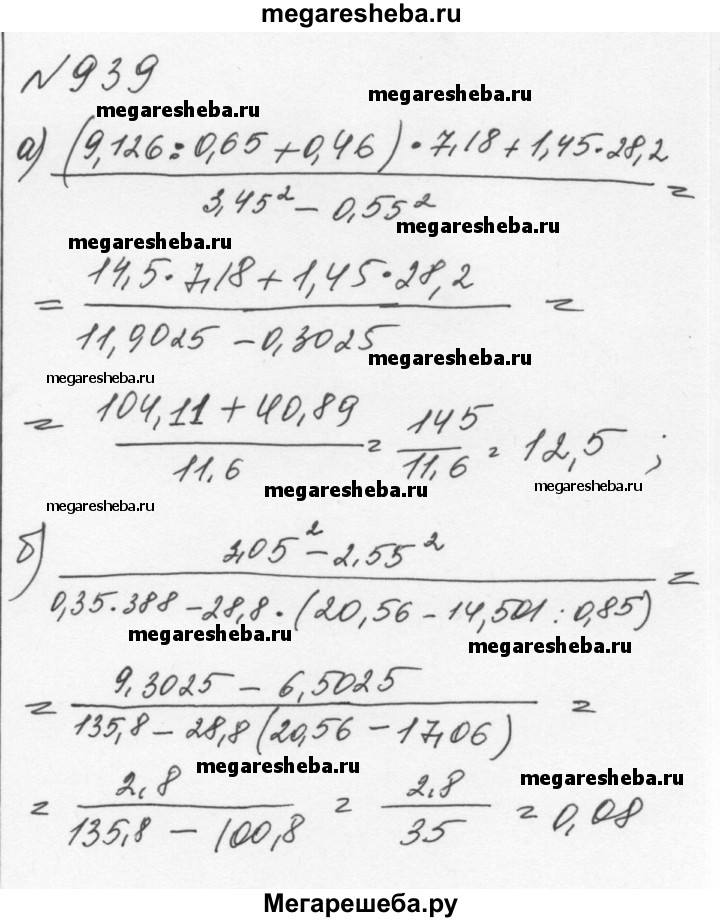 megaresheba.ru
№ 939
megaresheba.ru
а) (9,126 : 0,65 + 0,46) · 7,18 + 1,45 · 28,2
3,45² − 0,55² =
megaresheba.ru
megaresheba.ru
= 14,5 · 7,18 + 1,45 · 28,2 =
11,9025 − 0,3025
megaresheba.ru
megaresheba.ru
= 104,11 + 40,89 / 11,6 = 145 / 11,6 = 12,5 ;
megaresheba.ru
megaresheba.ru
megaresheba.ru
б) 3,05² − 2,55² =
0,35 · 388 − 28,8 · (20,56 − 14,501 : 0,85)
megaresheba.ru
megaresheba.ru
= 9,3025 − 6,5025 =
135,8 − 28,8 (20,56 − 17,06)
megaresheba.ru
megaresheba.ru
= 2,8 / 135,8 − 100,8 = 2,8 / 35 = 0,08
Мегарешеба.ру